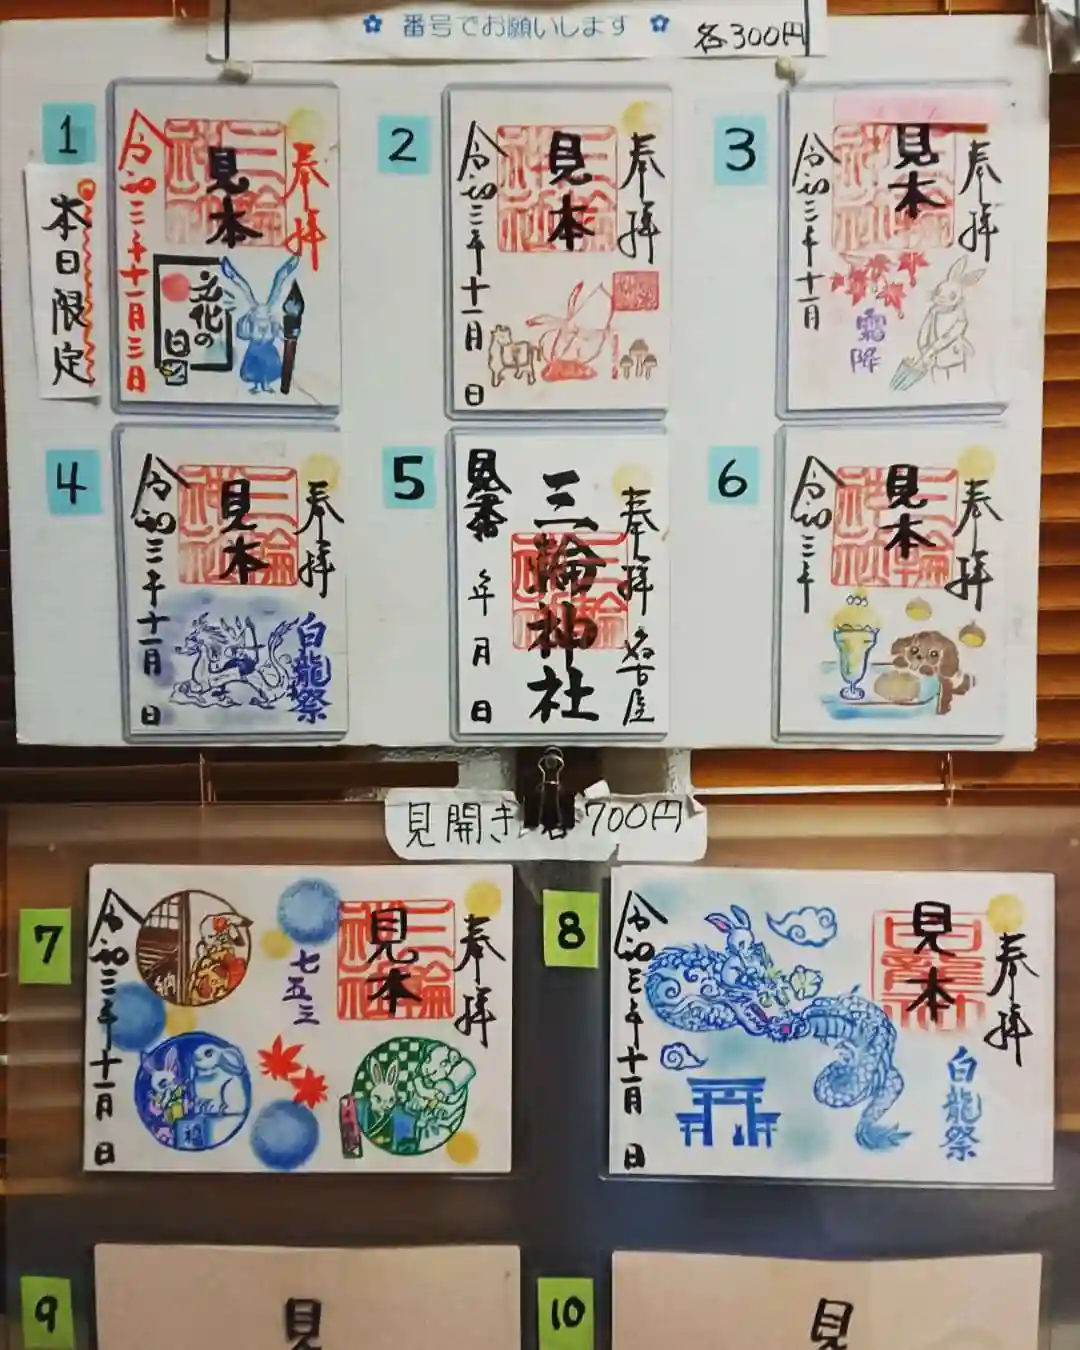 番号でお願いします
各300円
1
本日限定
奉拝
見本
三輪神社
令和三年十一月三日
文化の日
2
奉拝
見本
三輪神社
令和三年十一月 日
3
奉拝
見本
三輪神社
令和三年十一月
霜降
4
奉拝
見本
三輪神社
令和三年十一月 日
白龍祭
5
奉拝 名古屋
三輪神社
年 月 日
6
奉拝
見本
三輪神社
令和三年
見開き 各700円
7
奉拝
見本
三輪神社
七五三
令和三年十一月 日
8
奉拝
見本
白龍祭
令和三年十一月 日
9
見
10
見